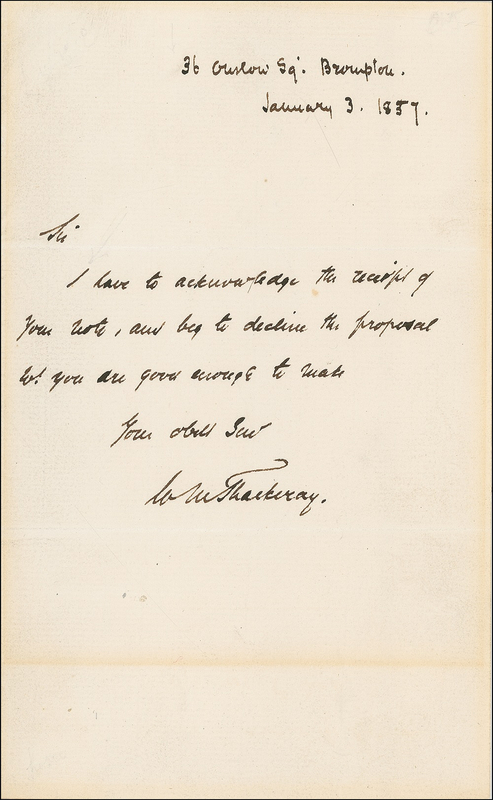 36 Onslow Sqr. Brompton.
January 3. 1857.
Sir
I have to acknowledge the receipt of
your note, and beg to decline the proposal
wh. you are good enough to make
Your obedt Serv
W M Thackeray.